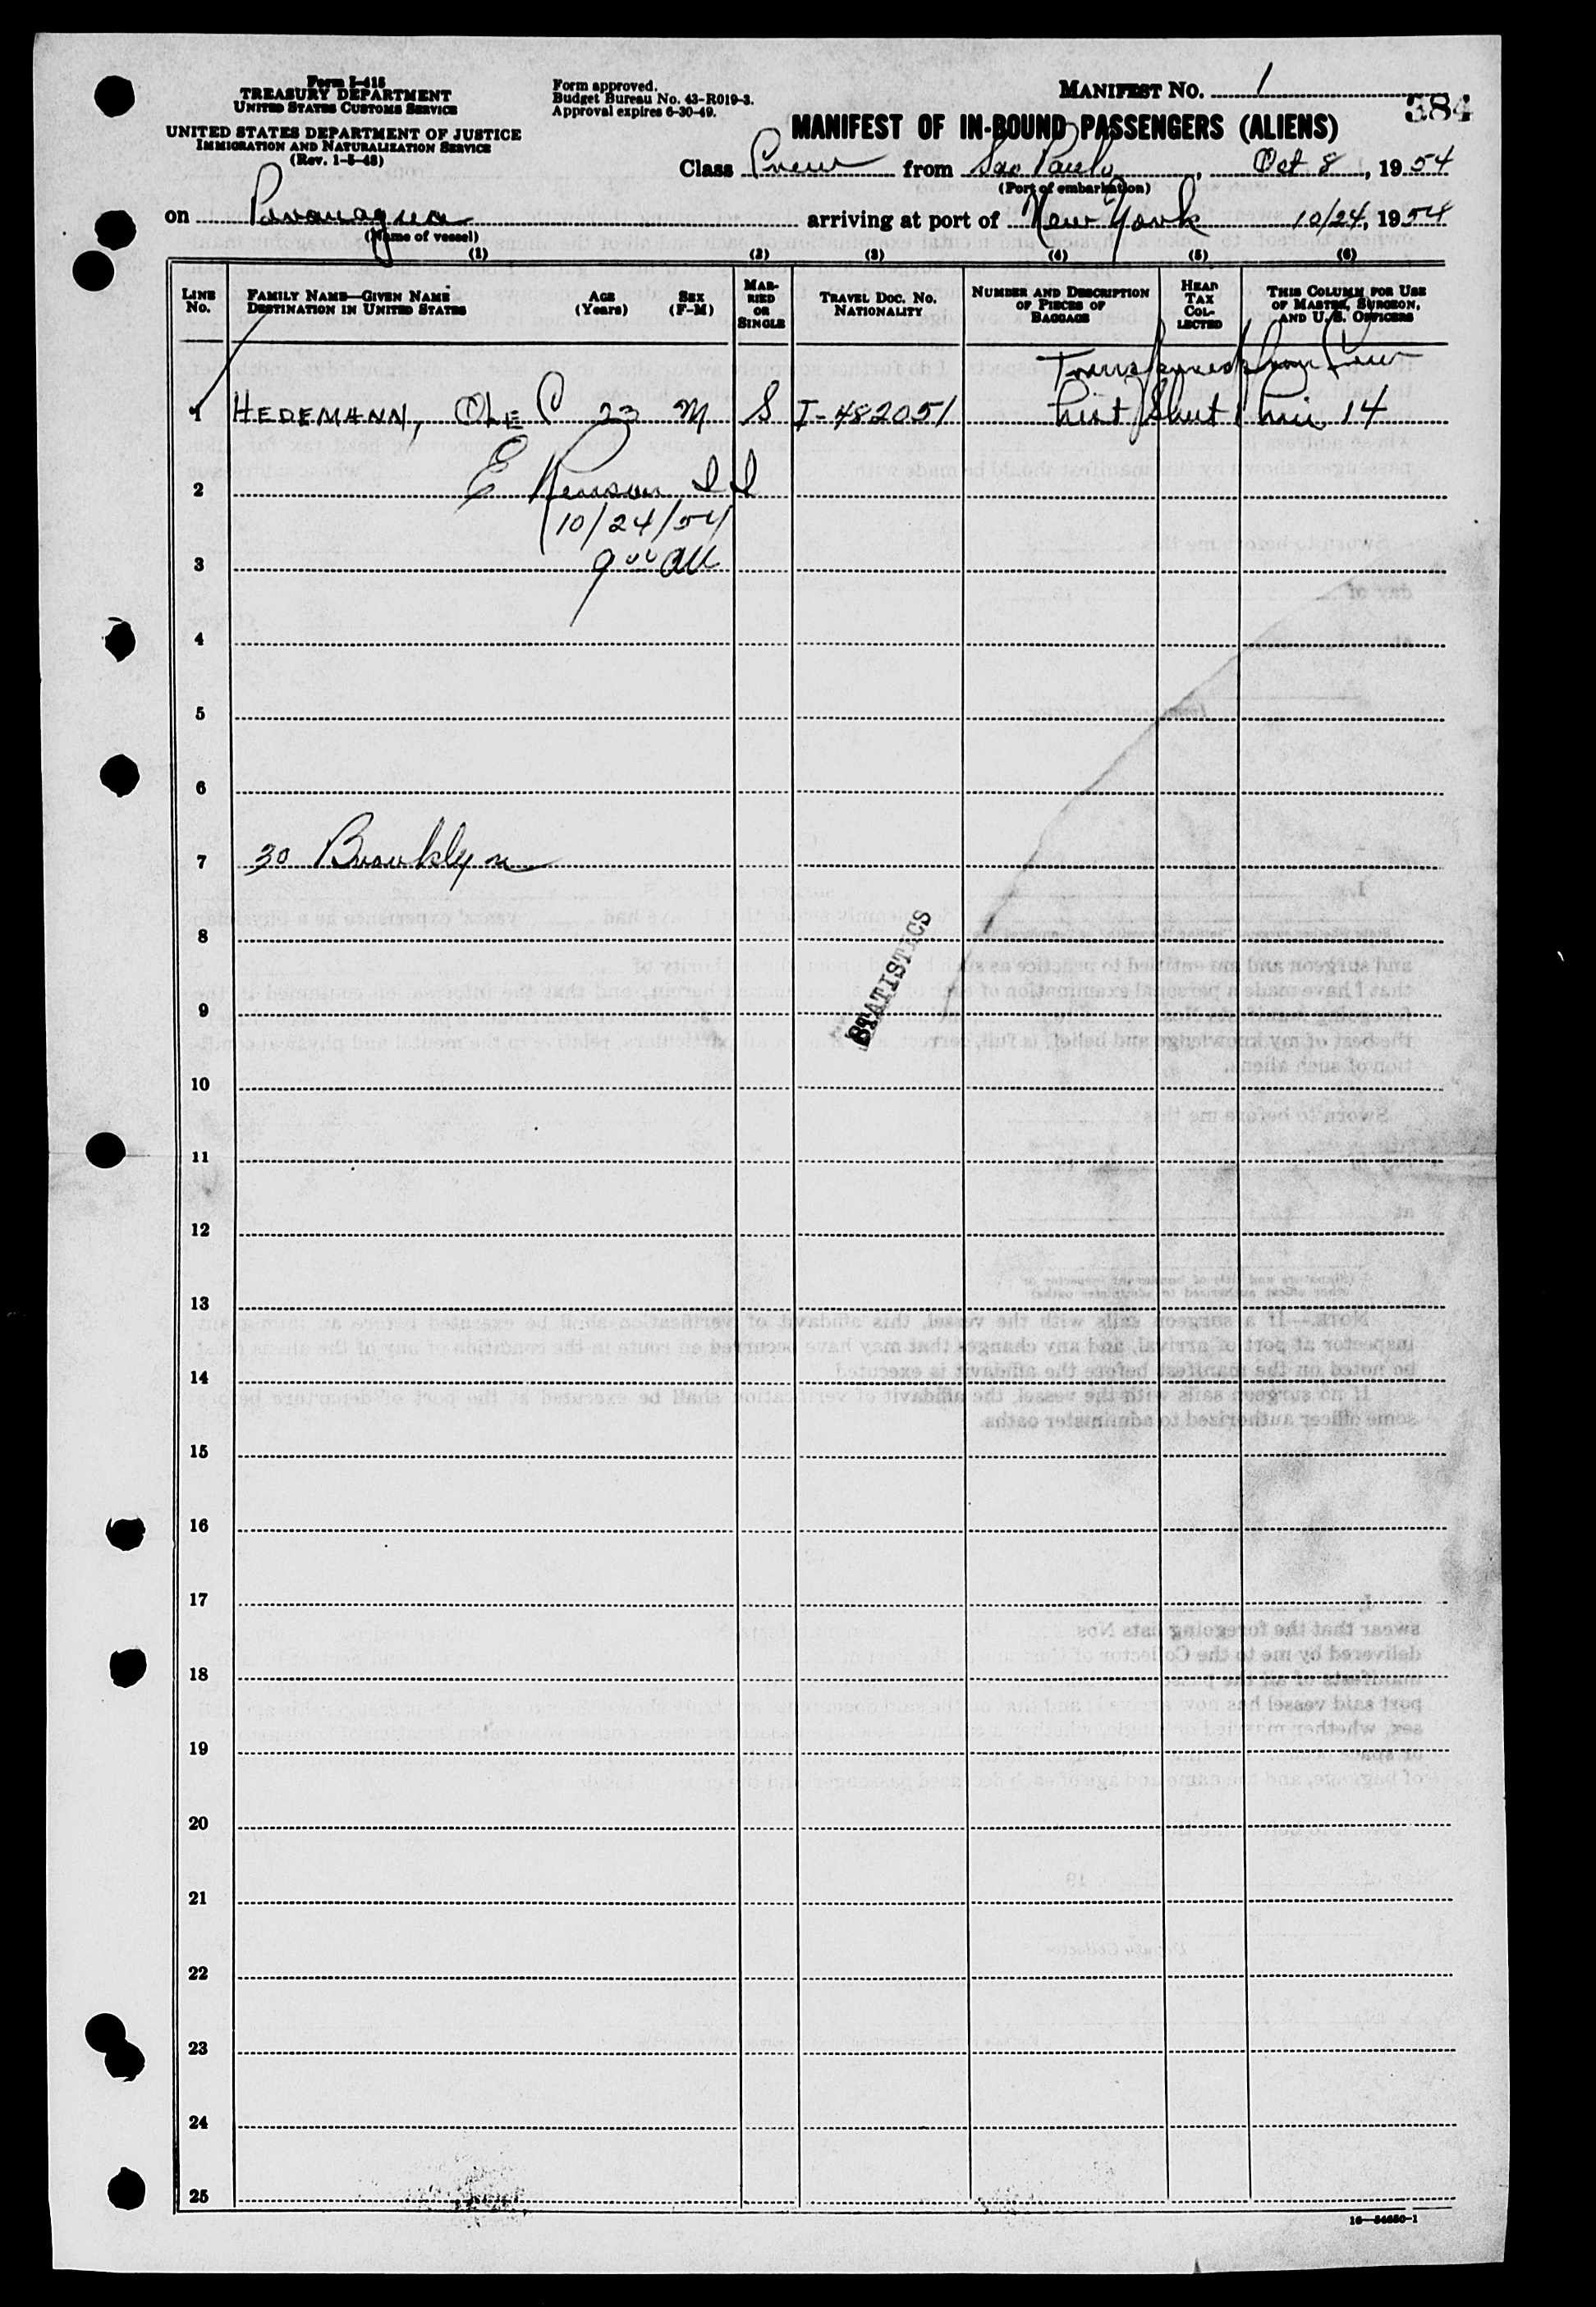 Form I-415
TREASURY DEPARTMENT
UNITED STATES CUSTOMS SERVICE
UNITED STATES DEPARTMENT OF JUSTICE
IMMIGRATION AND NATURALIZATION SERVICE
(Rev. 1-5-48)
Form approved.
Budget Bureau No. 43-R019-3.
Approval expires 6-30-49.
MANIFEST NO. 1
384
MANIFEST OF IN-BOUND PASSENGERS (ALIENS)
Class Crew from Sao Paulo, Oct 8, 1954
(Port of embarkation)
on arriving at port of New York 10/24, 1954
(Name of vessel)
(1) (2) (3) (4) (5) (6)
LINE NO.
FAMILY NAME—GIVEN NAME
DESTINATION IN UNITED STATES
AGE (Years)
SEX (F-M)
MARRIED OR SINGLE
TRAVEL DOC. NO.
NATIONALITY
NUMBER AND DESCRIPTION OF PIECES OF BAGGAGE
HEAD TAX COLLECTED
THIS COLUMN FOR USE OF MASTER, SURGEON, AND U. S. OFFICERS
Transferred from Crew
1 HEDEMANN, OLE C 23 M S I-482051 List Sheet 1 line 14
2 E
10/24/54
3 9 00 AM
4
5
6
7 30 Brooklyn
8
STATISTICS
9
10
11
12
13
14
15
16
17
18
19
20
21
22
23
24
25
16—54650-1